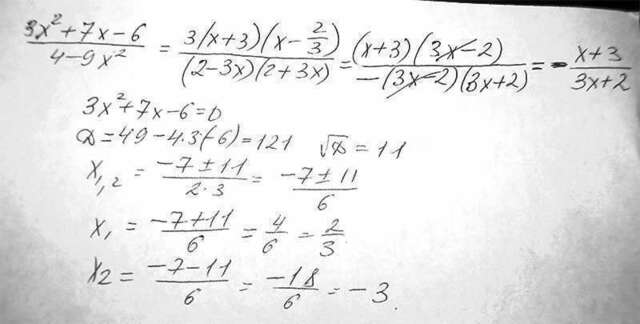 (3x²+7x-6)/(4-9x²) = (3(x+3)(x-2/3))/((2-3x)(2+3x)) = ((x+3)(3x-2))/(-(3x-2)(3x+2)) = -(x+3)/(3x+2)
3x²+7x-6=0
D=49-4·3·(-6)=121 √D=11
x₁,₂ = (-7±11)/(2·3) = (-7±11)/6
x₁ = (-7+11)/6 = 4/6 = 2/3
x₂ = (-7-11)/6 = (-18)/6 = -3.